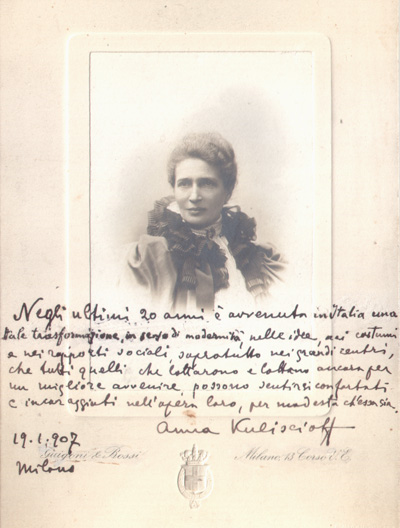 Negli ultimi 20 anni è avvenuta in Italia una
tale trasformazione, in senso di modernità nelle idee, nei costumi
e nei rapporti sociali, sopratutto nei grandi centri,
che tutti quelli che lottarono e lottano ancora per
un migliore avvenire, possono sentirsi confortati
e incoraggiati nell'opera loro, per modesta ch'essa sia.
Anna Kuliscioff
19.1.907
Milano
Guigoni & Bossi Milano, 13 Corso V.E.